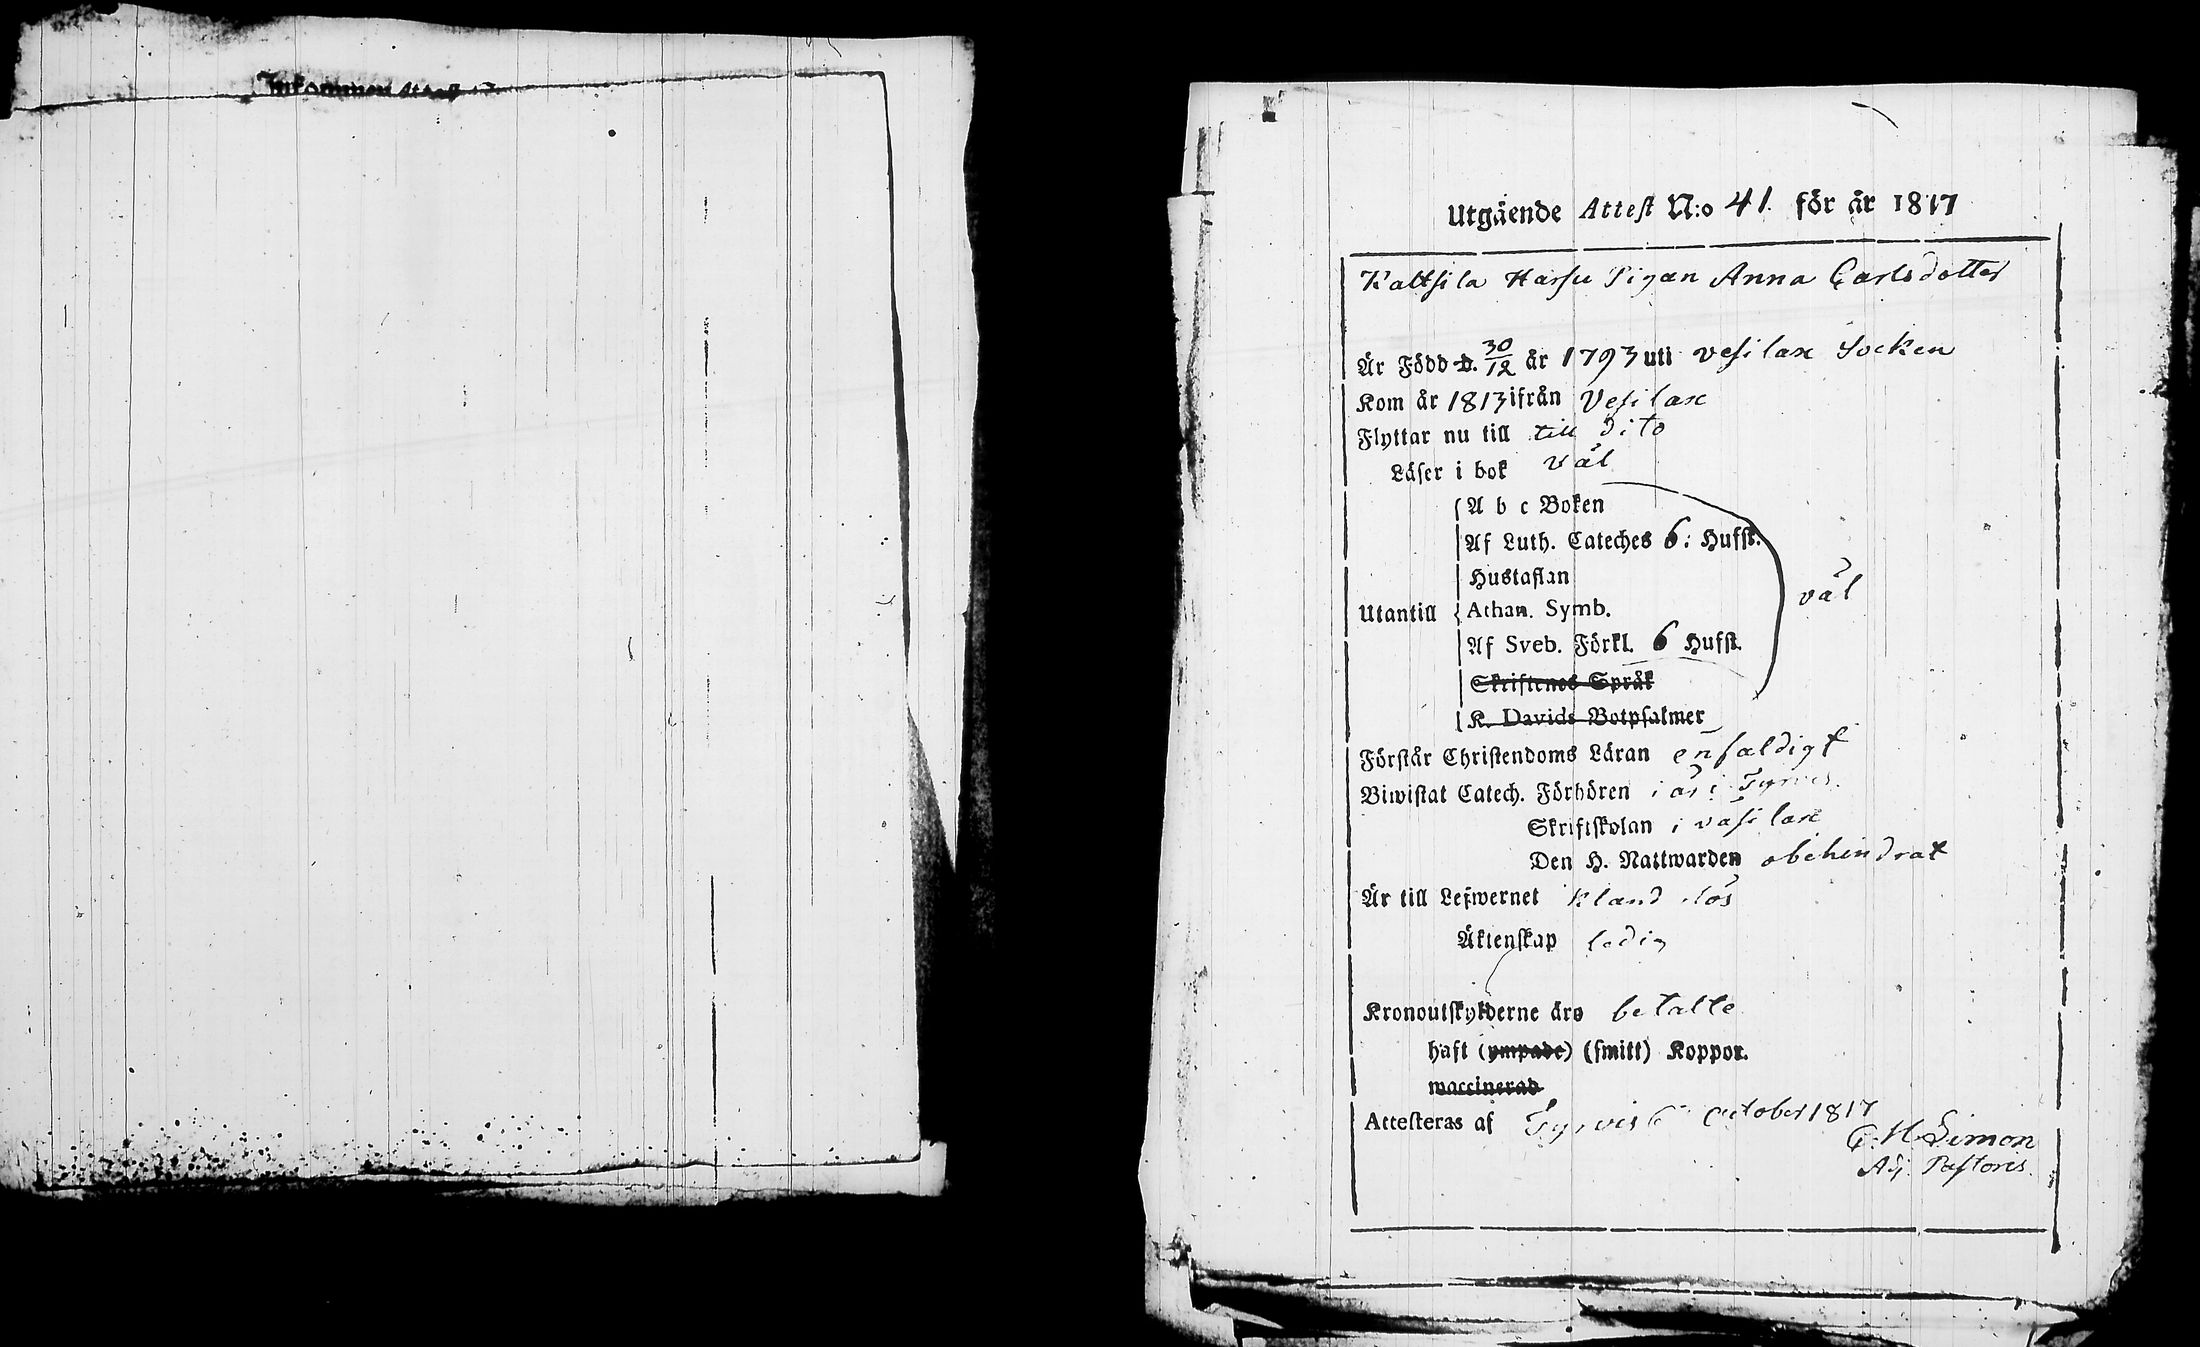 Inkommen Attest
Utgående Attest N:o 41 för år 1817
Kaltsila Harsu Pigan Anna Carlsdotter
Är Född d. 30/12 år 1793 uti Vesilax Socken
Kom år 1813 ifrån Vesilax
Flyttar nu till till dito
Läser i bok väl
A b c Boken
Af Luth. Cateches 6: Hufst.
Hustaflan
Utantill Athan. Symb. väl
Af Sveb. Förkl. 6 Hufst.
Skriftenes Språk
K. Davids Botpsalmer
Förstår Christendoms Läran enfaldigt
Biwistat Catech. Förhören i år i Tyrvis
Skriftskolan i väsilax
Den H. Nattwarden obehindrat
Är till Lefwernet klandlös
Äktenskap ledig
Kronoutskylderne äro betalte
haft (ympade) (smitt) Koppor.
waccinerad
Attesteras af Tyrvis 6 October 1817
G. H. Simon
Adj. Pastoris.